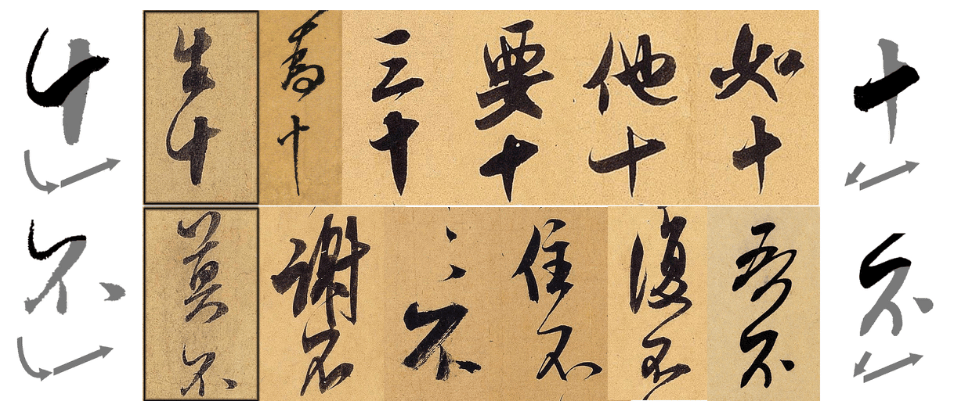 十
生十
十
三十
要十
他十
如十
十
不
莫不
謝不
不
住不
復不
吾不
不